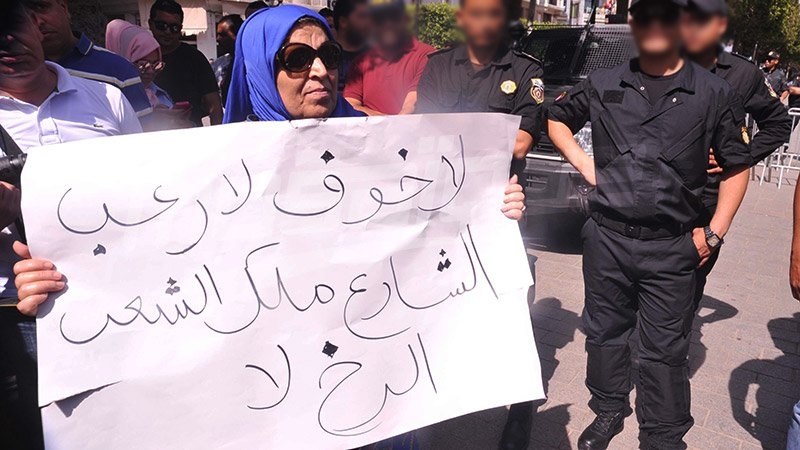 لا خوف لا رعب
الشارع ملك الشعب
الرخ لا